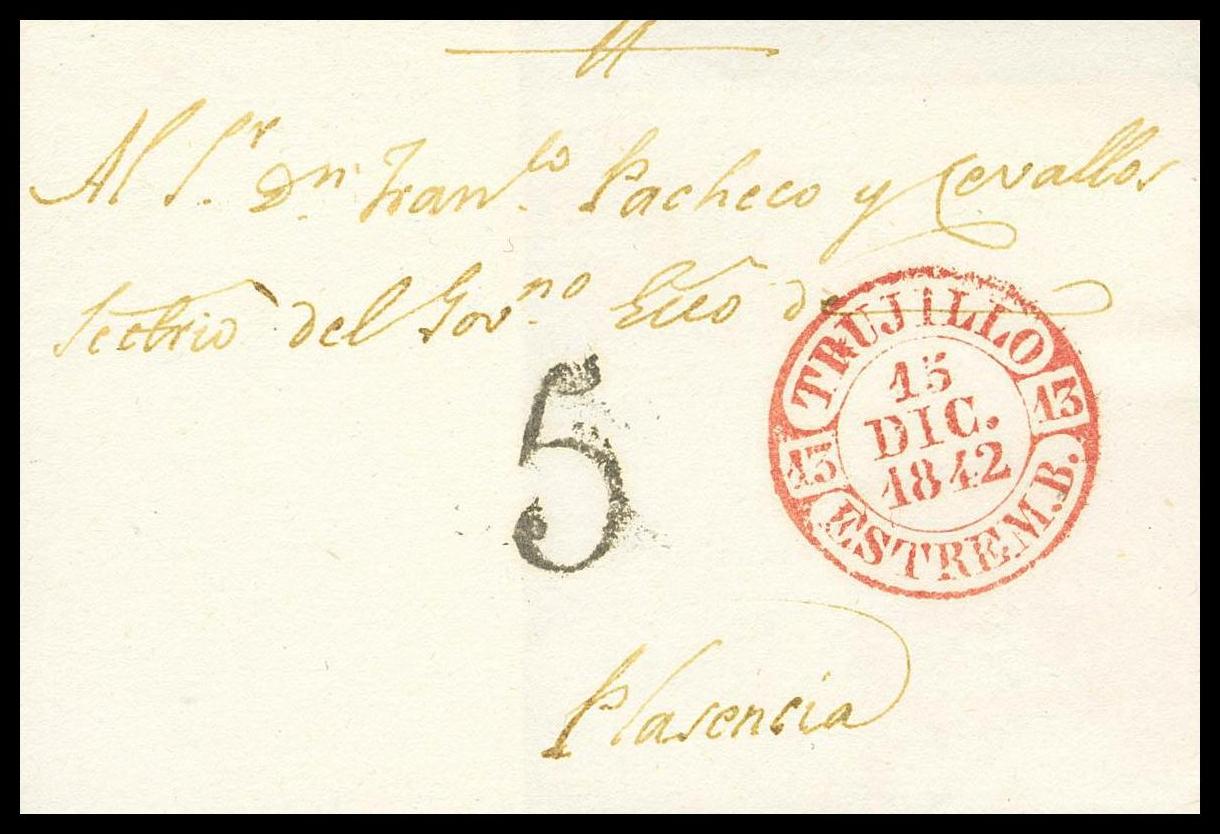 Al Sr. Dn. Franco. Pacheco y Cevallos
Sectrio del Govno. Ecco de
5
TRUJILLO
13 13
15
DIC.
1842
ESTREM.B.
Plasencia